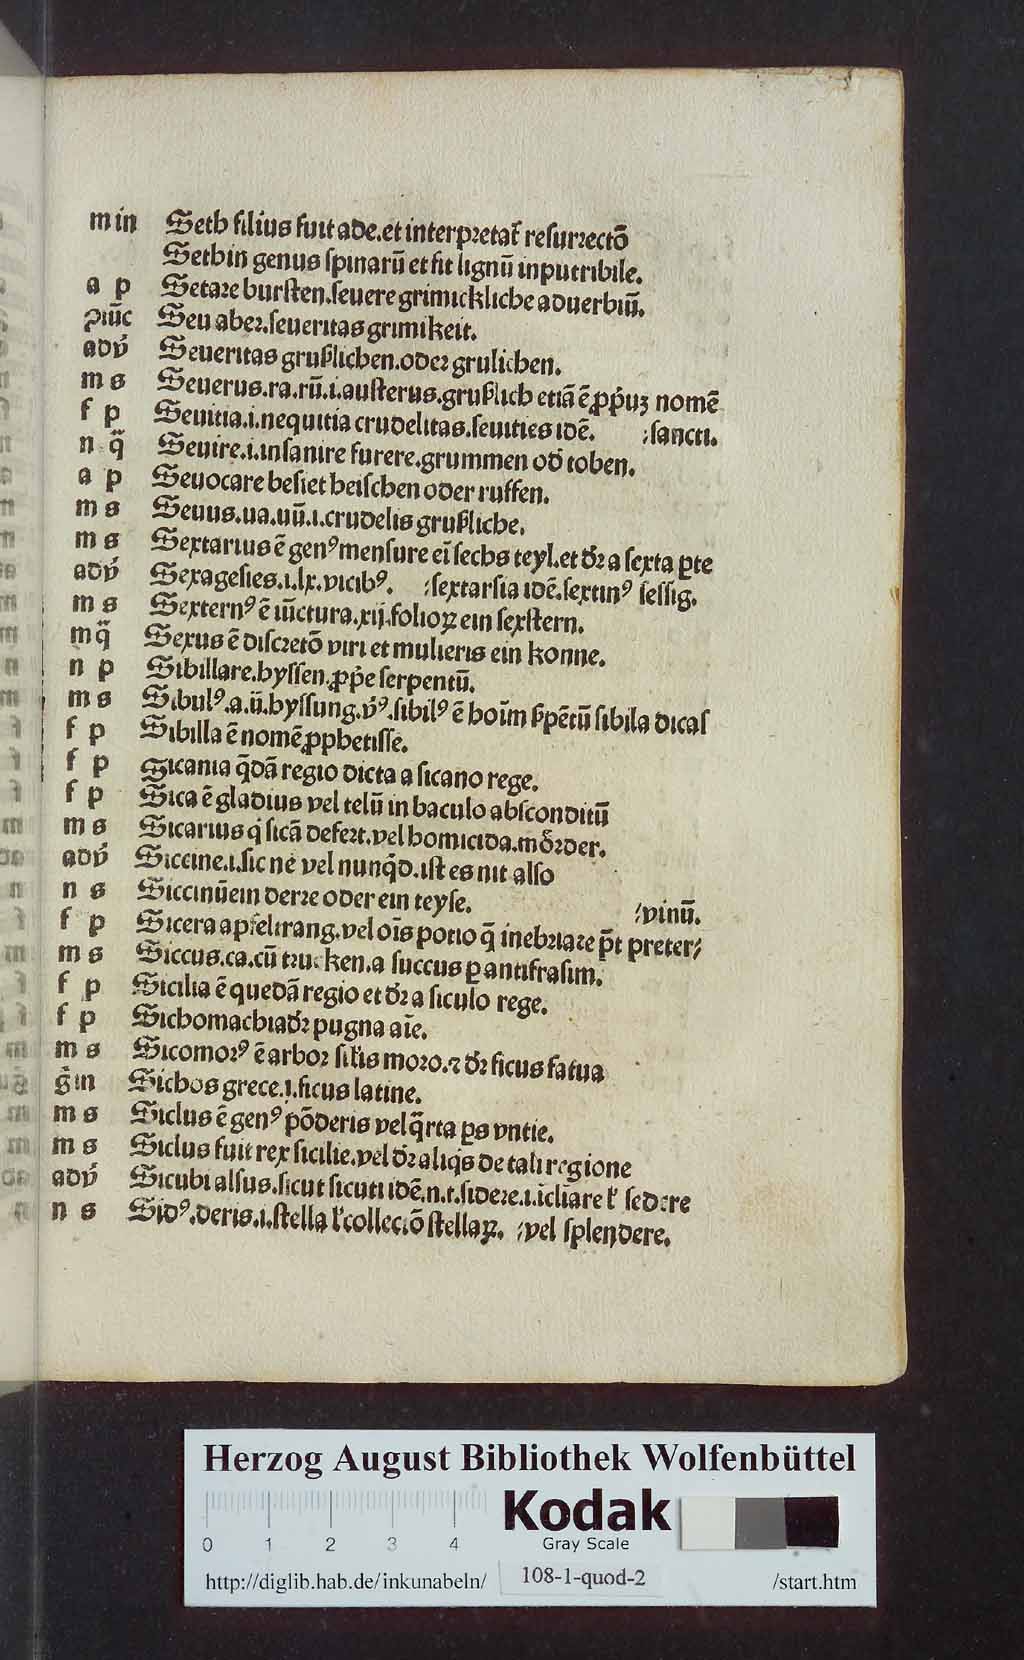 m in Seth filius fuit ade.et interp̄tat̄ resurrectō
Sethin genus spinarū et fit lignū inputribile.
a p Setare bursten.seuere grimickliche aduerbiū.
ꝯiūc Seu aber.seueritas grimikeit.
adv̄ Seueritas grußlichen.oder grulichen.
m s Seuerus.ra.rū.i.austerus.grußlich etiā ē ꝓp̄uꝫ nomē
f p Seuitia.i.nequitia crudelitas.seuities idē. ⸝sancti.
n q̄ Seuire.i.insanire furere.grummen od̄ toben.
a p Seuocare besiet heischen oder ruffen.
m s Seuus.ua.uū.i.crudelis grußliche.
m s Sextarius ē genꝰ mensure eī sechs teyl.et dr̄ a sexta ꝑte
adv̄ Sexagesies.i.lx.vicibꝰ. ⸝sextarsia idē.sextinꝰ sessig.
m s Sexternꝰ ē iūctura.xij.folioꝝ ein sexstern.
m q̄ Sexus ē discretō viri et mulieris ein konne.
n p Sibillare.hyssen.ꝓp̄e serpentū.
m s Sibulꝰ.a.ū.hyssung.v̄ꝰ.sibilꝰ ē hoīm s̄pētū sibila dicas
f p Sibilla ē nomē ꝓphetisse.
f p Sicania q̄dā regio dicta a sicano rege.
f p Sica ē gladius vel telū in baculo absconditū
m s Sicarius qͥ sicā defert.vel homicida.mörder.
adv̄ Siccine.i.sic ne vel nunqͥd.ist es nit also
n s Siccinū ein derre oder ein teyse. ⸝vinū.
f p Sicera apfeltrang.vel oīs potio q̄ inebriare p̄t preter⸝
m s Siccus.ca.cū trucken.a succus ꝑ antifrasim.
f p Sicilia ē quedā regio et dr̄ a siculo rege.
f p Sichomachia dr̄ pugna aīe.
m s Sicomorꝰ ē arbor sil̄is moro.⁊ dr̄ ficus fatua
ḡ in Sichos grece.i.ficus latine.
m s Siclus ē genꝰ pōderis vel q̄rta ꝑs vntie.
m s Siclus fuit rex sicilie.vel dr̄ aliqͥs de tali regione
adv̄ Sicubi alsus.sicut sicuti idē.n.t.sidere.i.īclīare ł sedere
n s Sidꝰ.deris.i.stella ł collectō stellaꝝ. ⸝vel splendere.
Herzog August Bibliothek Wolfenbüttel
0 1 2 3 4
Kodak
Gray Scale
http://diglib.hab.de/inkunabeln/ 108-1-quod-2 /start.htm